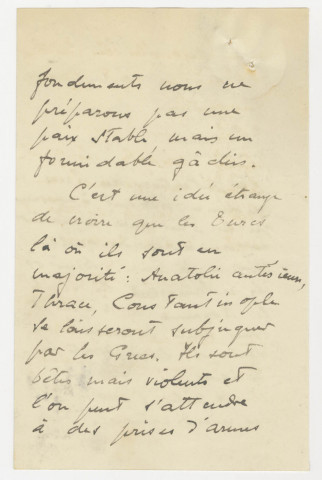 fondements nous ne
préparons pas une
paix stable mais un
formidable gâchis.
C'est une idée étrange
de croire que les Turcs
là où ils sont en
majorité : Anatolie antérieure,
Thrace, Constantinople
se laisseront subjuguer
par les Grecs. Ils sont
bêtes mais violents et
l'on peut s'attendre
à des prises d'armes